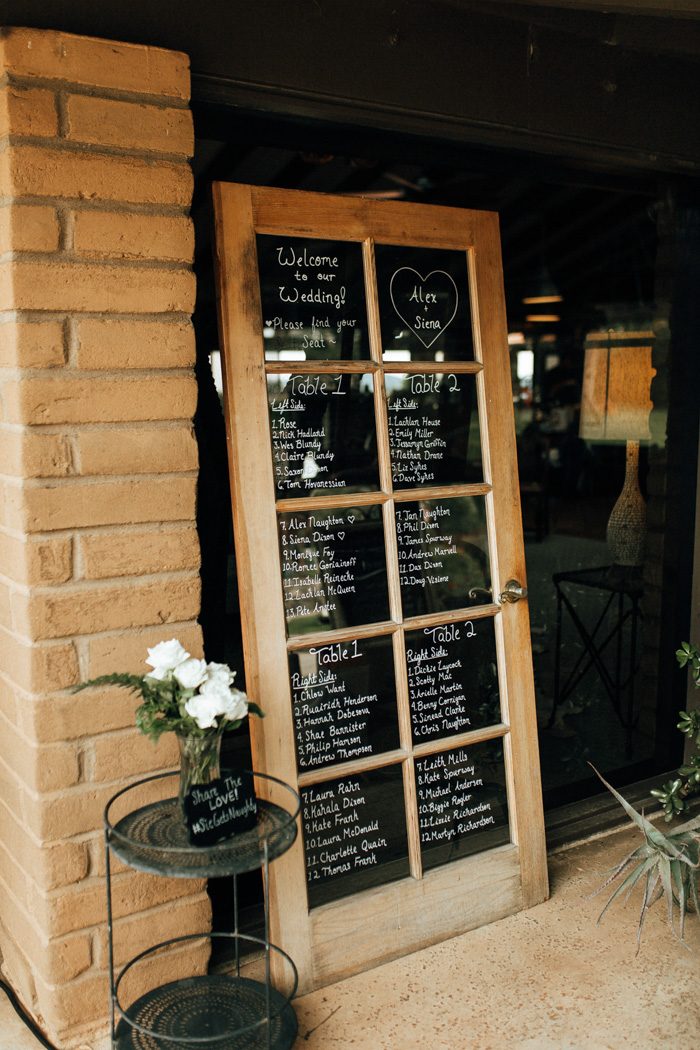 Welcome
to our
Wedding!
♥ Please find your
Seat ~
Alex
+
Siena
Table 1
Left Side:
1. Rose
2. Nick Hadland
3. Wes Blundy
4. Claire Blundy
5. Saxon
6. Tom Hovanessian
7. Alex Naughton ♡
8. Siena Dixon ♡
9. Montque Foy
10. Romee Gortainoff
11. Isabelle Reinecke
12. Lachlan McQueen
13. Pete Anstee
Table 2
Left Side:
1. Lachlan House
2. Emily Miller
3. Jessamyn Griffin
4. Nathan Drane
5. Liz Sykes
6. Dave Sykes
7. Jan Naughton
8. Phil Dixon
9. James Spurway
10. Andrew Marvell
11. Dax Dixon
12. Doug Visione
Table 1
Right Side
1. Chlow Want
2. Ruairidh Henderson
3. Hannah Dobesova
4. Shae Bannister
5. Philip Hamson
6. Andrew Thompson
7. Laura Rahn
8. Kahala Dixon
9. Kate Frank
10. Laura McDonald
11. Charlotte Quain
12. Thomas Frank
Table 2
Right Side:
1. Dickie Laycock
2. Scotty Mac
3. Arielle Martin
4. Benny Corrigan
5. Sinead Clarke
6. Chris Naughton
7. Leith Mills
8. Kate Spurway
9. Michael Andersen
10. Biggie Rogler
11. Lizzie Richardson
12. Martyn Richardson
Share The
LOVE!
#SieGetsNaughty